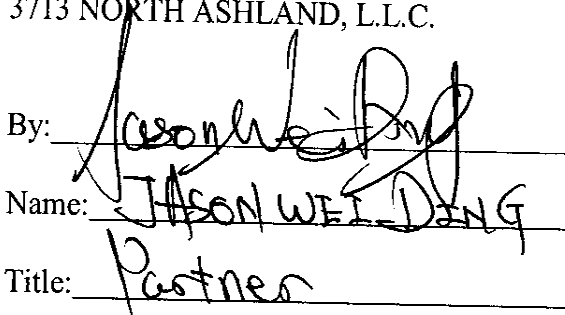 3713 NORTH ASHLAND, L.L.C.
By: Jason Wei Ding
Name: JASON WEI-DING
Title: Partner